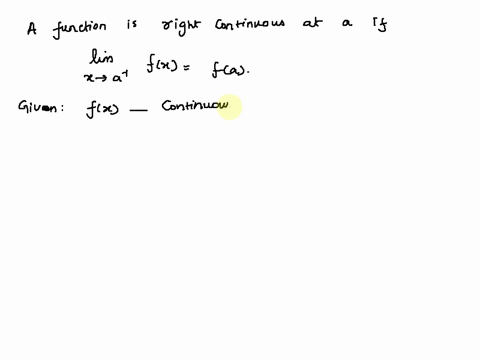 A function is right continuous at a if
lim f(x) = f(a).
x→a⁺
Given: f(x) — Continuou